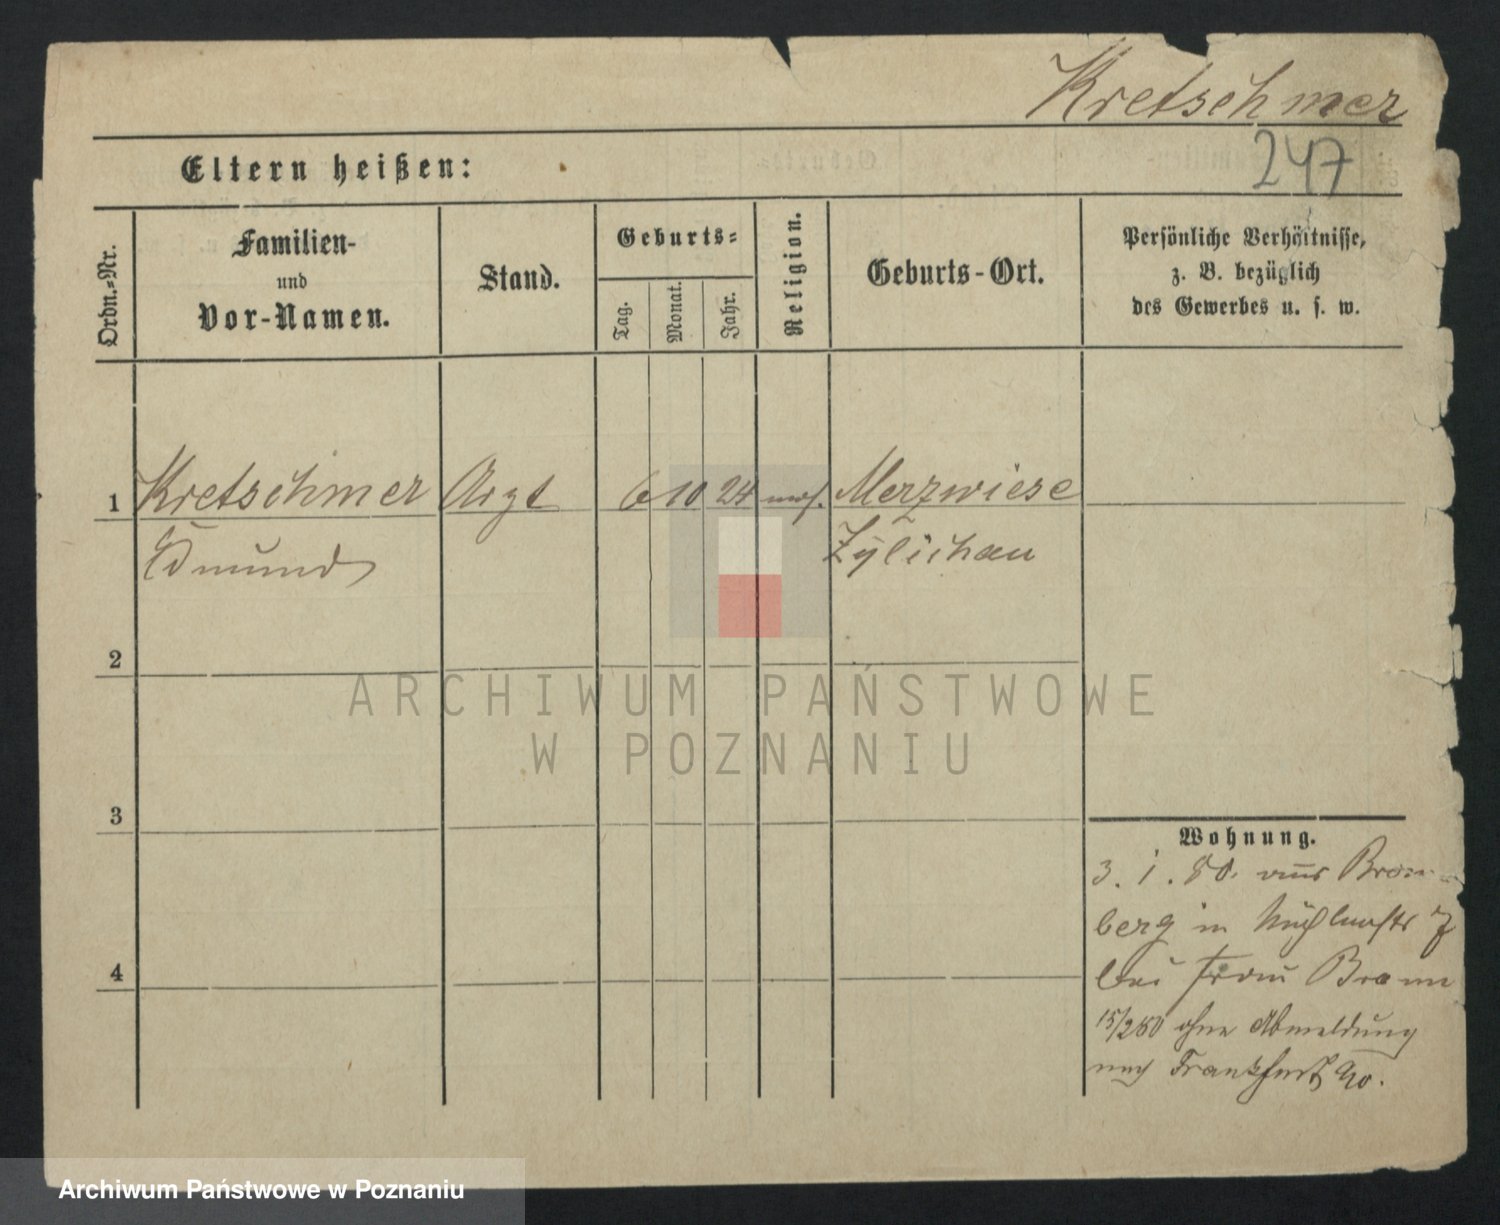 Kretschmer
247
Eltern heißen:
Ordn.-Nr.
Familien-
und
Vor-Namen.
Stand.
Geburts-
Tag.
Monat.
Jahr.
Religion.
Geburts-Ort.
Persönliche Verhältnisse,
z. B. bezüglich
des Gewerbes u. s. w.
1 Kretschmer Arzt 6 10 24 Merzwiese
Edmund Zylichau
2
3
4
Wohnung.
3. 1. 80. aus Brom-
berg in 7
bei Frau Braun
15/2 80 ohne Abmeldung
nach Frankfurt
ARCHIWUM PAŃSTWOWE
W POZNANIU
Archiwum Państwowe w Poznaniu